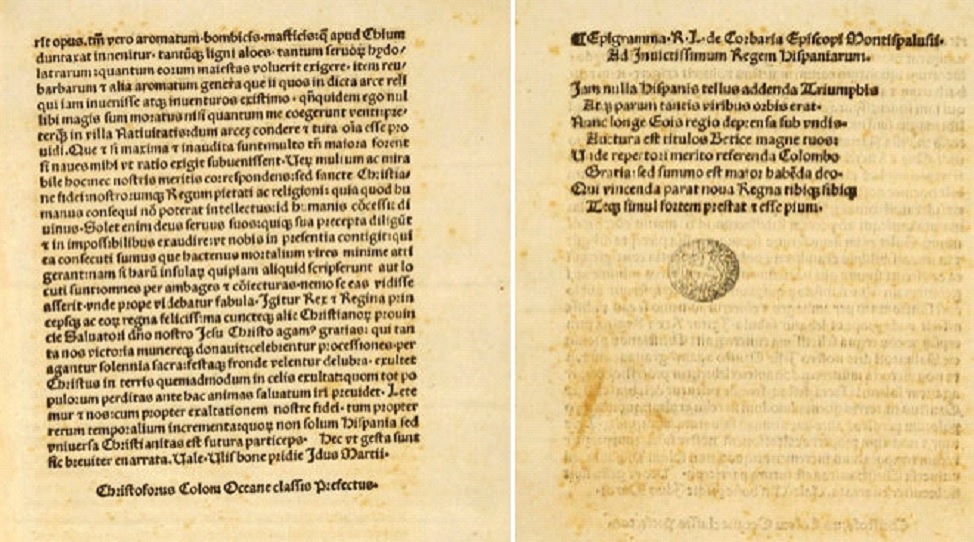 rit opus. tm̃ vero aromatum. bombicis. masticis: q̃ apud Chium
duntaxat inuenitur. tantũq; ligni aloes. tantum seruoꝝ hydo/
latrarum: quantum eorum maiestas voluerit exigere. item reu/
barbarum ⁊ alia aromatum genera que ii quos in dicta arce reli
qui iam inuenisse atq; inuenturos existimo. qñquidem ego nul
libi magis sum moratus nisi quantum me coegerunt venti: pre/
terq̃ in villa Natiuitatis: dum arcez condere ⁊ tuta oĩa esse pro
uidi. Que ⁊ si maxima ⁊ inaudita sunt: multo tñ maiora forent
si naues mihi vt ratio exigit subuenissent. Uerũ multum ac mira
bile hoc: nec nostris meritis correspondens: sed sancte Christia/
ne fidei: nostrorumq; Regum pietati ac religioni: quia quod hu
manus consequi nõ poterat intellectus: id humanis cõcessit di
uinus. Solet enim deus seruos suos: quiq; sua precepta diligũt
⁊ in impossibilibus exaudire: vt nobis in presentia contigit: qui
ea consecuti sumus que hactenus mortalium vires minime atti
gerant: nam si harũ insulaꝝ quipiam aliquid scripserunt aut lo
cuti sunt: omnes per ambages ⁊ cõiecturas. nemo se eas vidisse
asserit. vnde prope videbatur fabula. Igitur Rex ⁊ Regina prin
cepsq; ac eoꝝ regna felicissima cuncteq; alie Christianoꝝ prouin
cie Saluatori dño nostro Jesu Christo agam⁹ gratias: qui tan
ta nos victoria munereq; donauit: celebrentur processiones. per
agantur solennia sacra: festaq; fronde velentur delubra. exultet
Christus in terris quemadmodum in celis exultat: quom tot po
pulorum perditas ante hac animas saluatum iri preuidet. Lete
mur ⁊ nos: cum propter exaltationem nostre fidei. tum propter
rerum temporalium incrementa: quoꝝ non solum Hispania sed
vniuersa Christianitas est futura particeps. Hec vt gesta sunt
sic breuiter enarrata. Uale. Ulisbone pridie Idus Martii.
Christoforus Colom Oceane classis Prefectus.
¶ Epigramma. R. L. de Corbaria Episcopi Montispalusii.
Ad Inuictissimum Regem Hispaniarum.
Jam nulla Hispanis tellus addenda Triumphis
Atq; parum tantis viribus orbis erat.
Nunc longe Eois regio deprensa sub vndis.
Auctura est titulos Betice magne tuos:
Unde repertori merito referenda Colombo
Gratia: sed summo est maior habẽda deo.
Qui vincenda parat noua Regna tibiq; sibiq;
Teq; simul fortem prestat ⁊ esse pium.